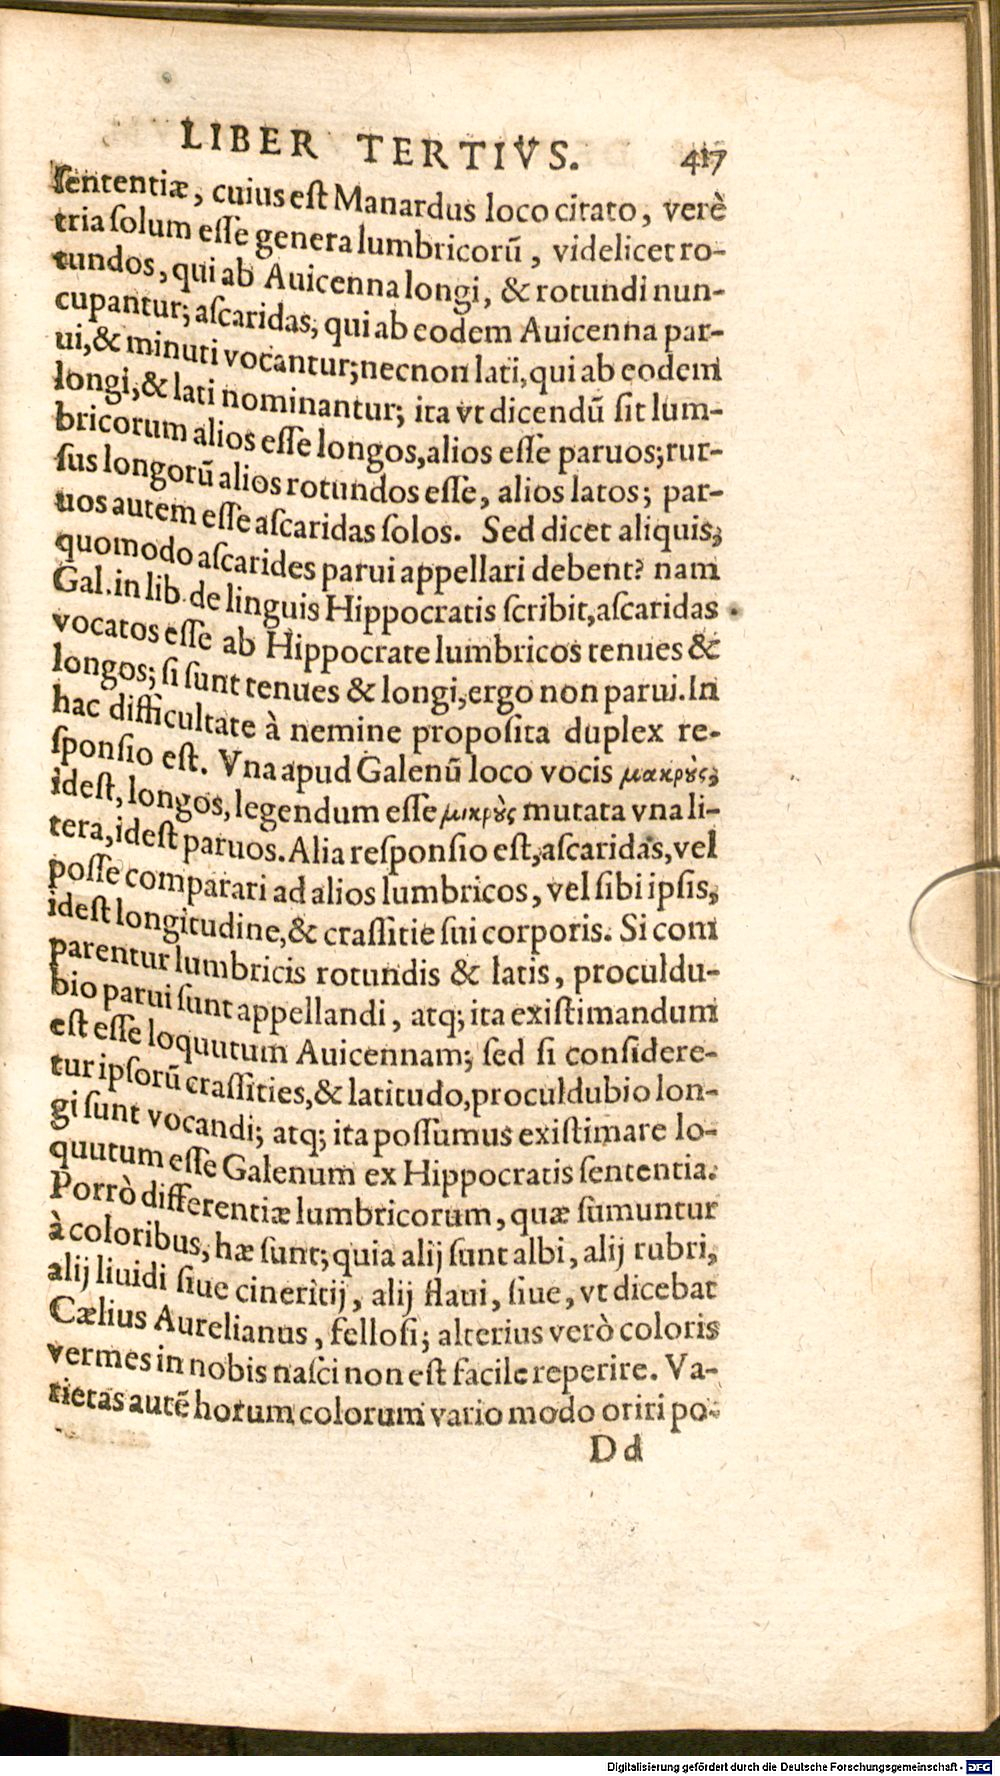 LIBER TERTIVS. 417
ſententiæ, cuius eſt Manardus loco citato, verè
tria ſolum eſſe genera lumbricorũ, videlicet ro-
tundos, qui ab Auicenna longi, & rotundi nun-
cupantur; aſcaridas, qui ab eodem Auicenna par-
ui, & minuti vocantur; necnon lati, qui ab eodem
longi, & lati nominantur; ita vt dicendũ ſit lum-
bricorum alios eſſe longos, alios eſſe paruos; rur-
ſus longorũ alios rotundos eſſe, alios latos; par-
uos autem eſſe aſcaridas ſolos. Sed dicet aliquis,
quomodo aſcarides parui appellari debent? nam
Gal. in lib. de linguis Hippocratis ſcribit, aſcaridas
vocatos eſſe ab Hippocrate lumbricos tenues &
longos; ſi ſunt tenues & longi, ergo non parui. In
hac difficultate à nemine propoſita duplex re-
ſponſio eſt. Vna apud Galenũ loco vocis μακρȣ̀ς,
ideſt, longos, legendum eſſe μικρȣ̀ς mutata vna li-
tera, ideſt paruos. Alia reſponſio eſt, aſcaridas, vel
poſſe comparari ad alios lumbricos, vel ſibi ipſis,
ideſt longitudine, & craſſitie ſui corporis. Si com
parentur lumbricis rotundis & latis, proculdu-
bio parui ſunt appellandi, atq; ita exiſtimandum
eſt eſſe loquutum Auicennam; ſed ſi conſidere-
tur ipſorũ craſſities, & latitudo, proculdubio lon-
gi ſunt vocandi; atq; ita poſſumus exiſtimare lo-
quutum eſſe Galenum ex Hippocratis ſententia.
Porrò differentiæ lumbricorum, quæ ſumuntur
à coloribus, hæ ſunt; quia alij ſunt albi, alij rubri,
alij liuidi ſiue cineritij, alij flaui, ſiue, vt dicebat
Cælius Aurelianus, felloſi; alterius verò coloris
vermes in nobis naſci non eſt facile reperire. Va-
rietas autẽ horum colorum vario modo oriri po-
Dd
Digitalisierung gefördert durch die Deutsche Forschungsgemeinschaft - DFG